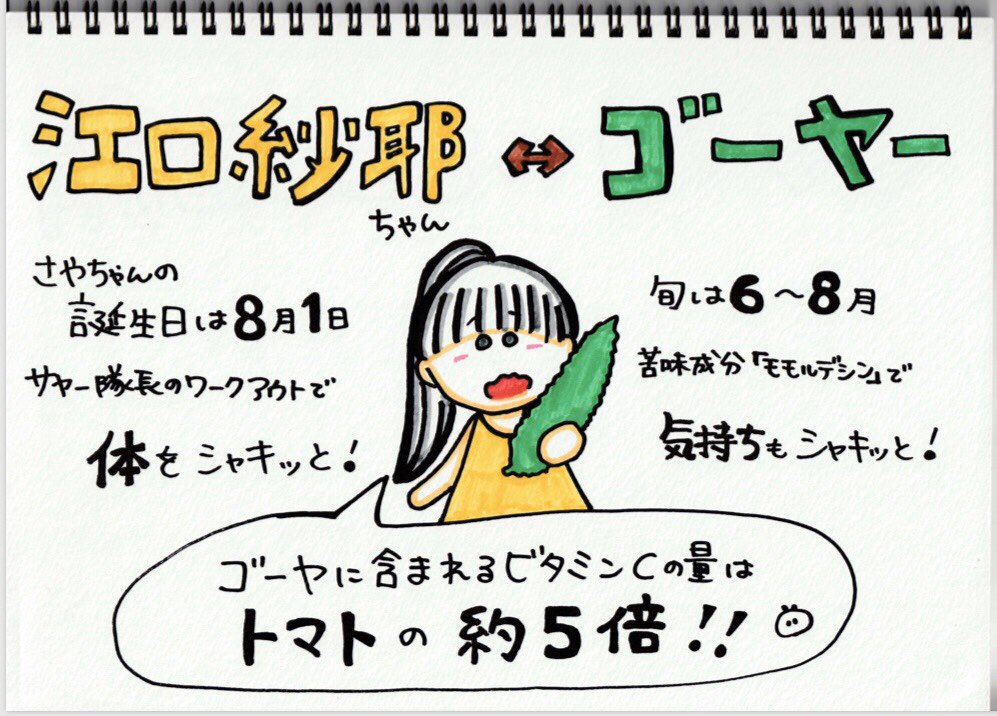 江口紗耶 ↔ ゴーヤー
ちゃん
さやちゃんの
誕生日は8月1日
サヤー隊長のワークアウトで
体をシャキッと!
旬は6〜8月
苦味成分「モモルデシン」で
気持ちもシャキッと!
ゴーヤに含まれるビタミンCの量は
トマトの約5倍!!